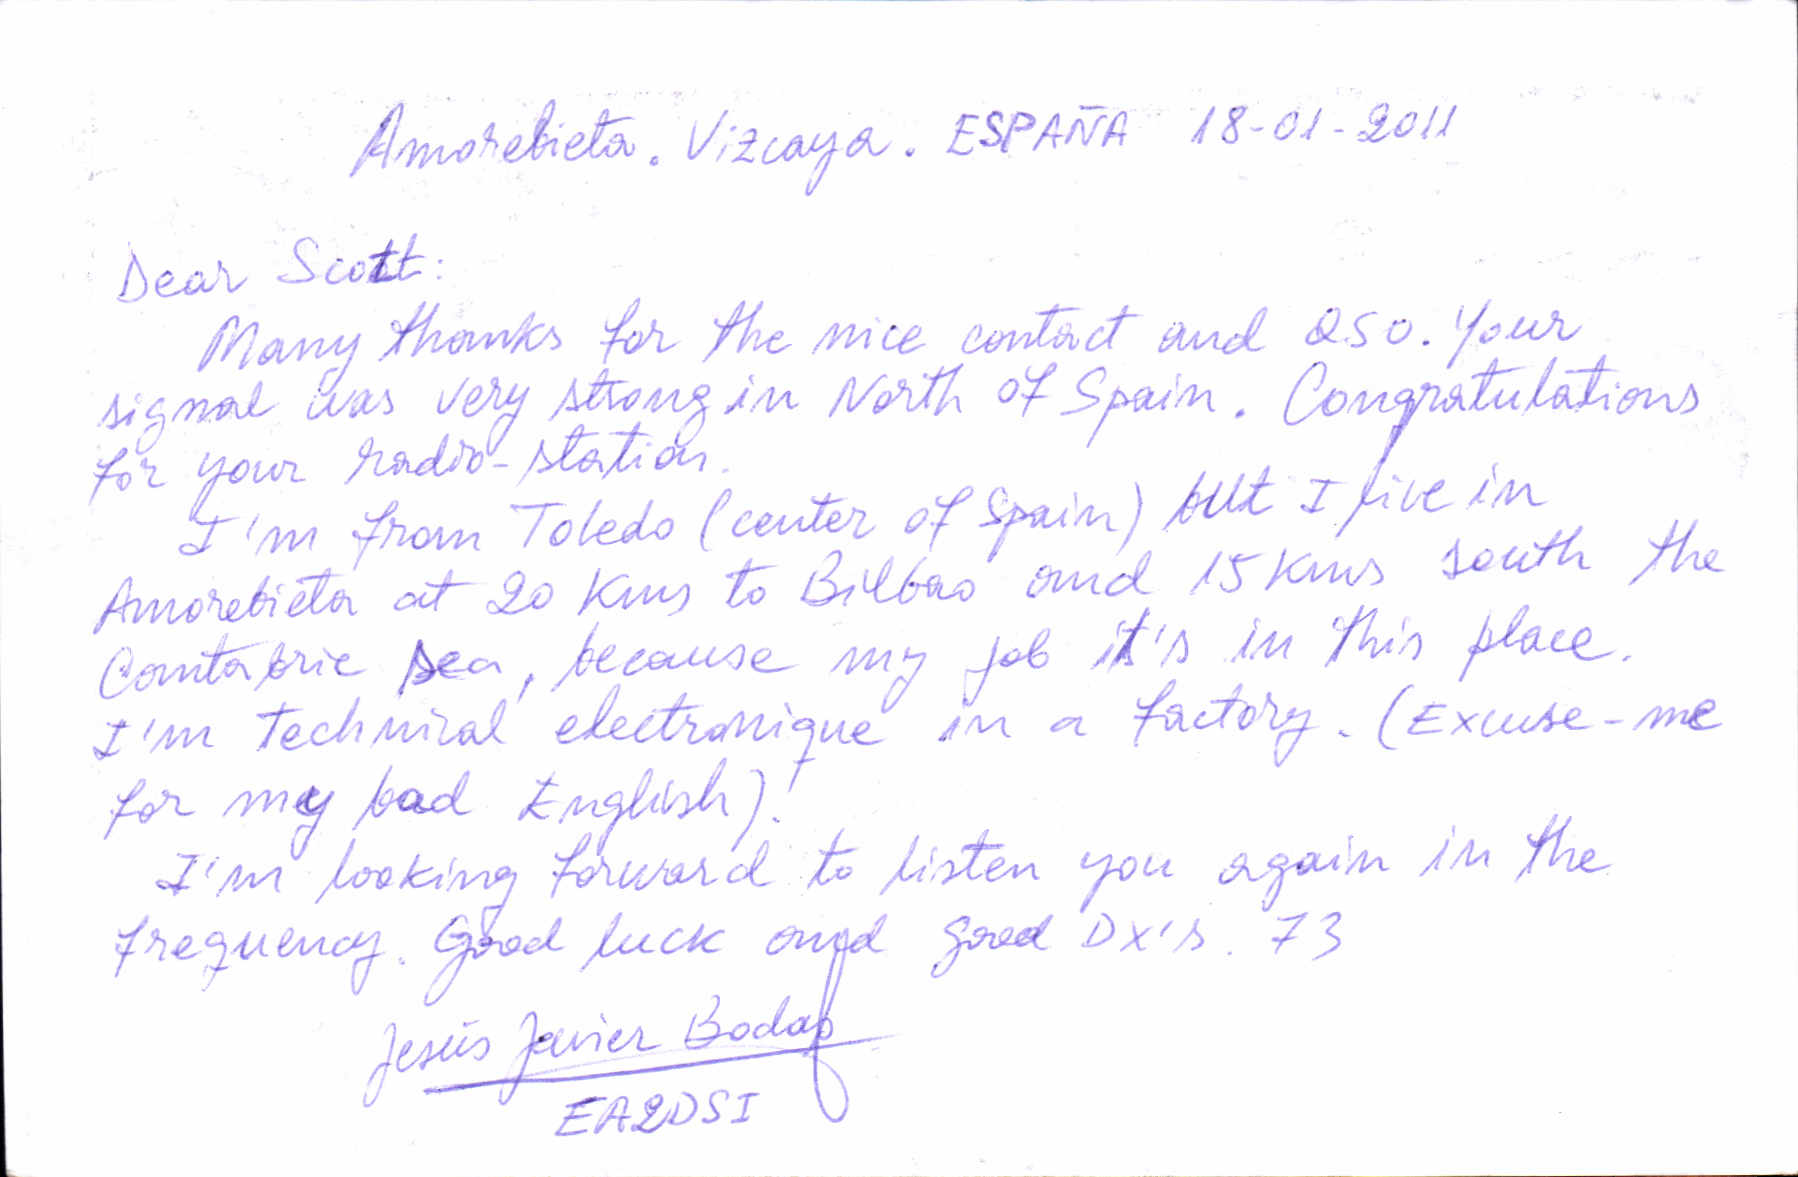 Amorebieta. Vizcaya. ESPAÑA 18-01-2011
Dear Scott:
Many thanks for the nice contact and QSO. Your
signal was very strong in North of Spain. Congratulations
for your radio-station.
I'm from Toledo (center of Spain) but I live in
Amorebieta at 20 Kms to Bilbao and 15 Kms south the
Cantabric sea, because my job it's in this place.
I'm technical electronique in a factory. (Excuse-me
for my bad English).
I'm looking forward to listen you again in the
frequency. Good luck and good DX's. 73
Jesús Javier
EA2DSI